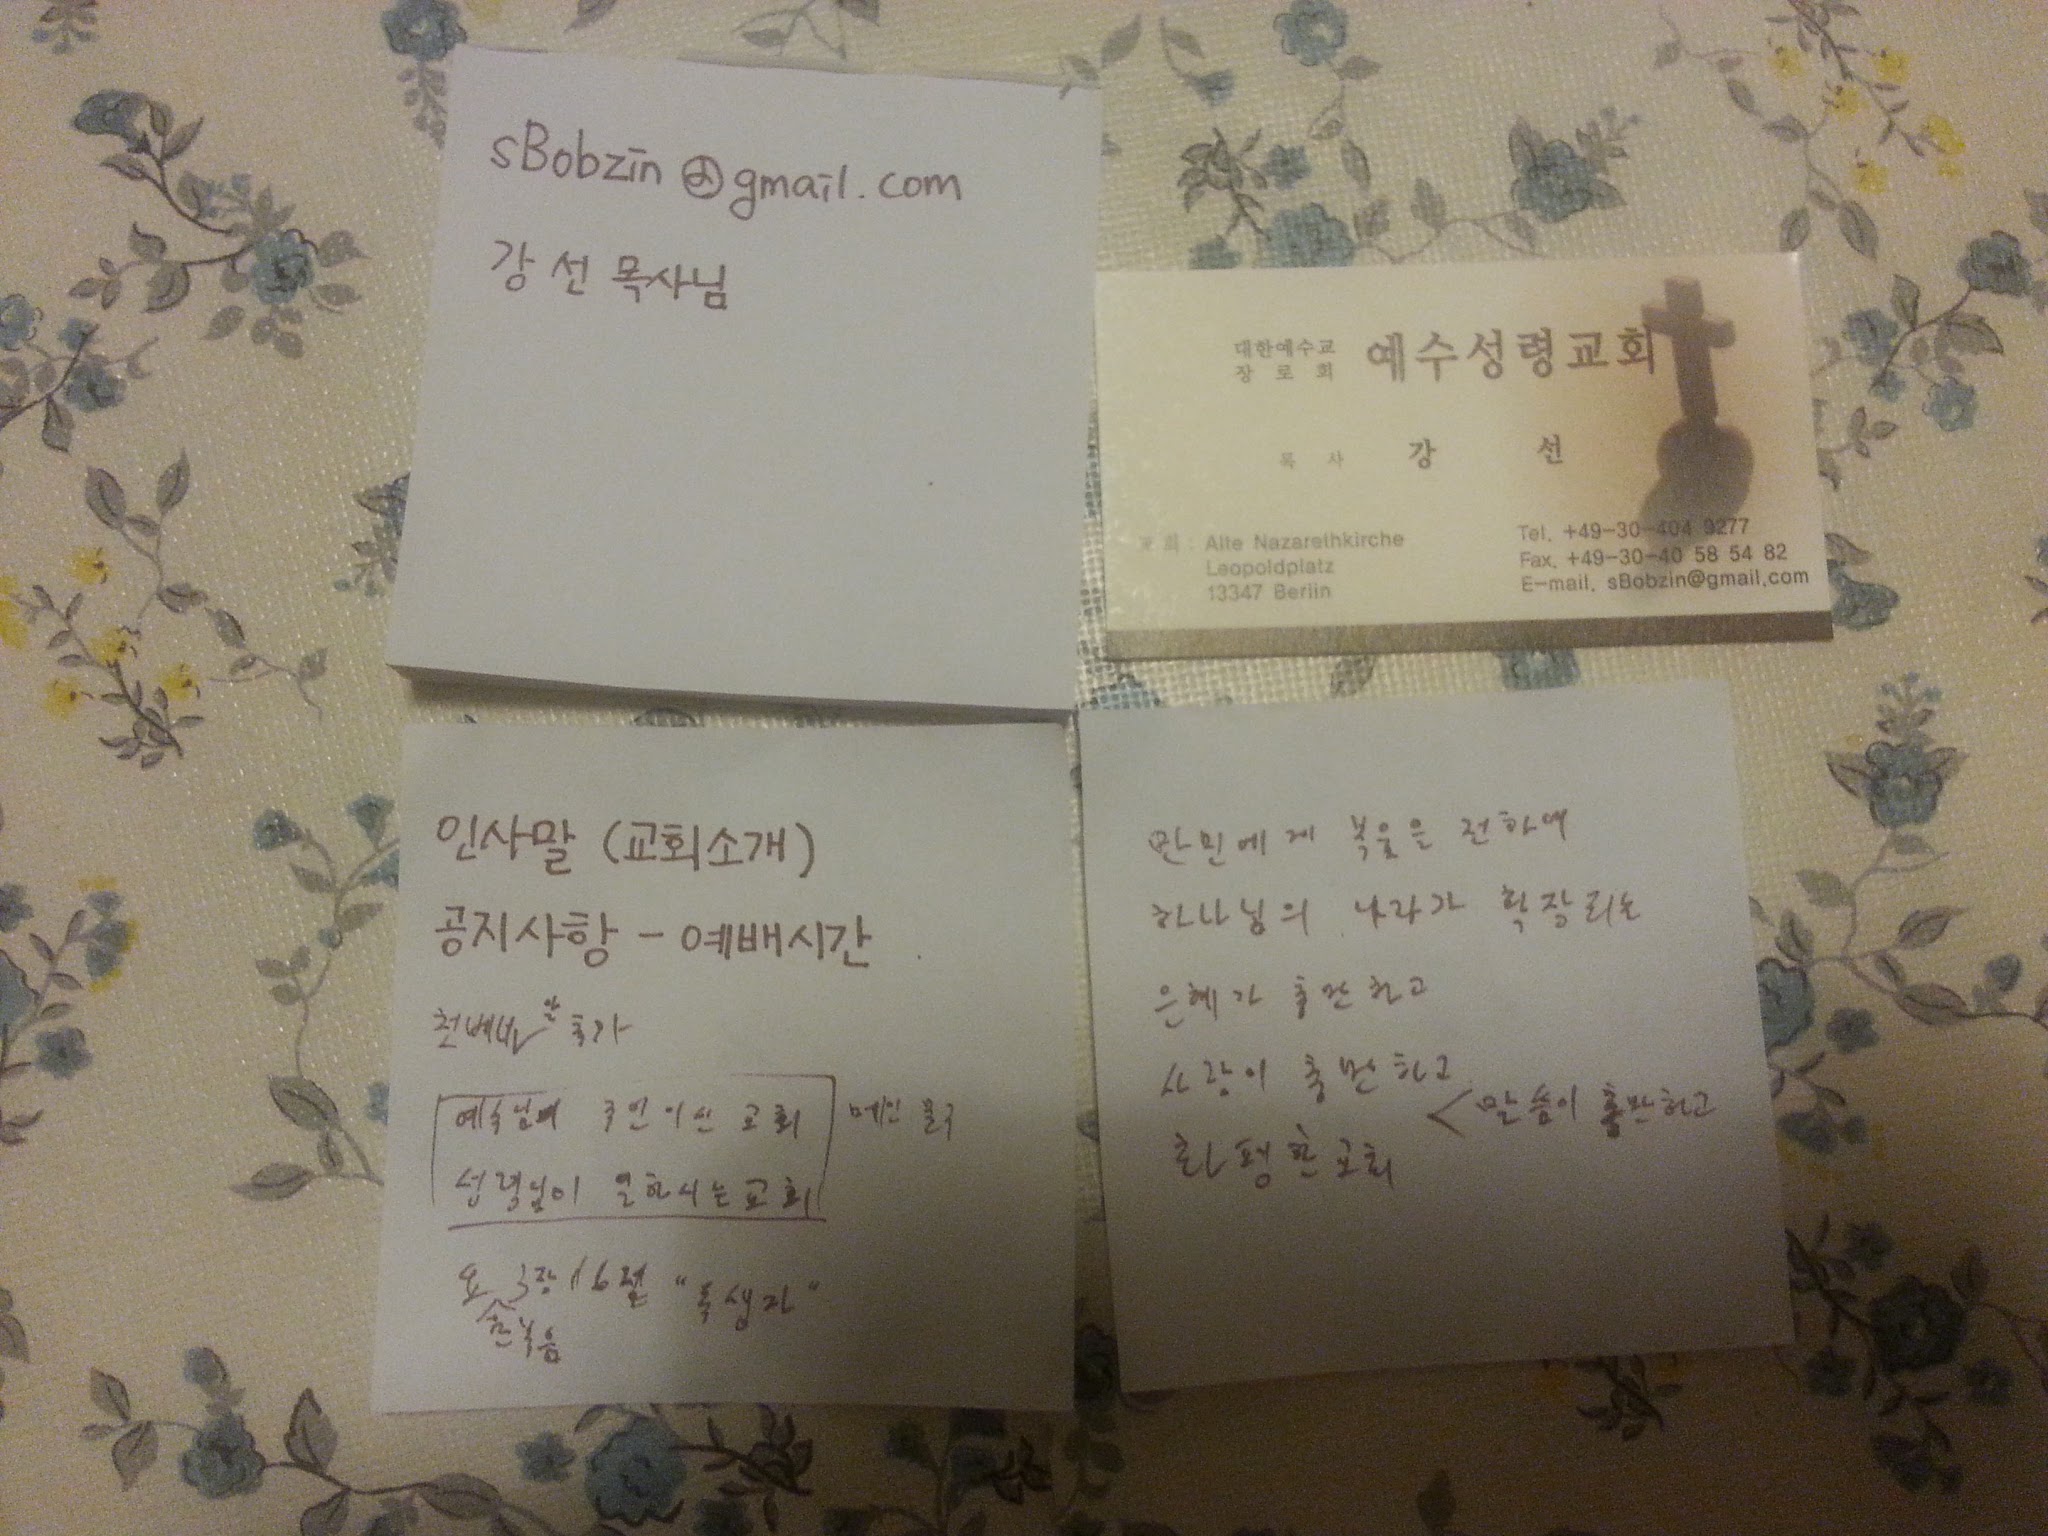 sBobzin@gmail.com
강 선 목사님
대한예수교
장로회
예수성령교회
목 사 강 선
교 회 : Alte Nazarethkirche
Leopoldplatz
13347 Berlin
Tel. +49-30-404 9277
Fax. +49-30-40 58 54 82
E-mail. sBobzin@gmail.com
인사말 (교회소개)
공지사항 - 예배시간
추가
예수님이 주인이신 교회
성령님이 일하시는 교회
메인 문구
요 3장 16절 "독생자"
한복음
만민에게 복음은 전하여
하나님의 나라가 확장되는
은혜가 충만하고
사랑이 충만하고
말씀이 충만하고
화평한 교회